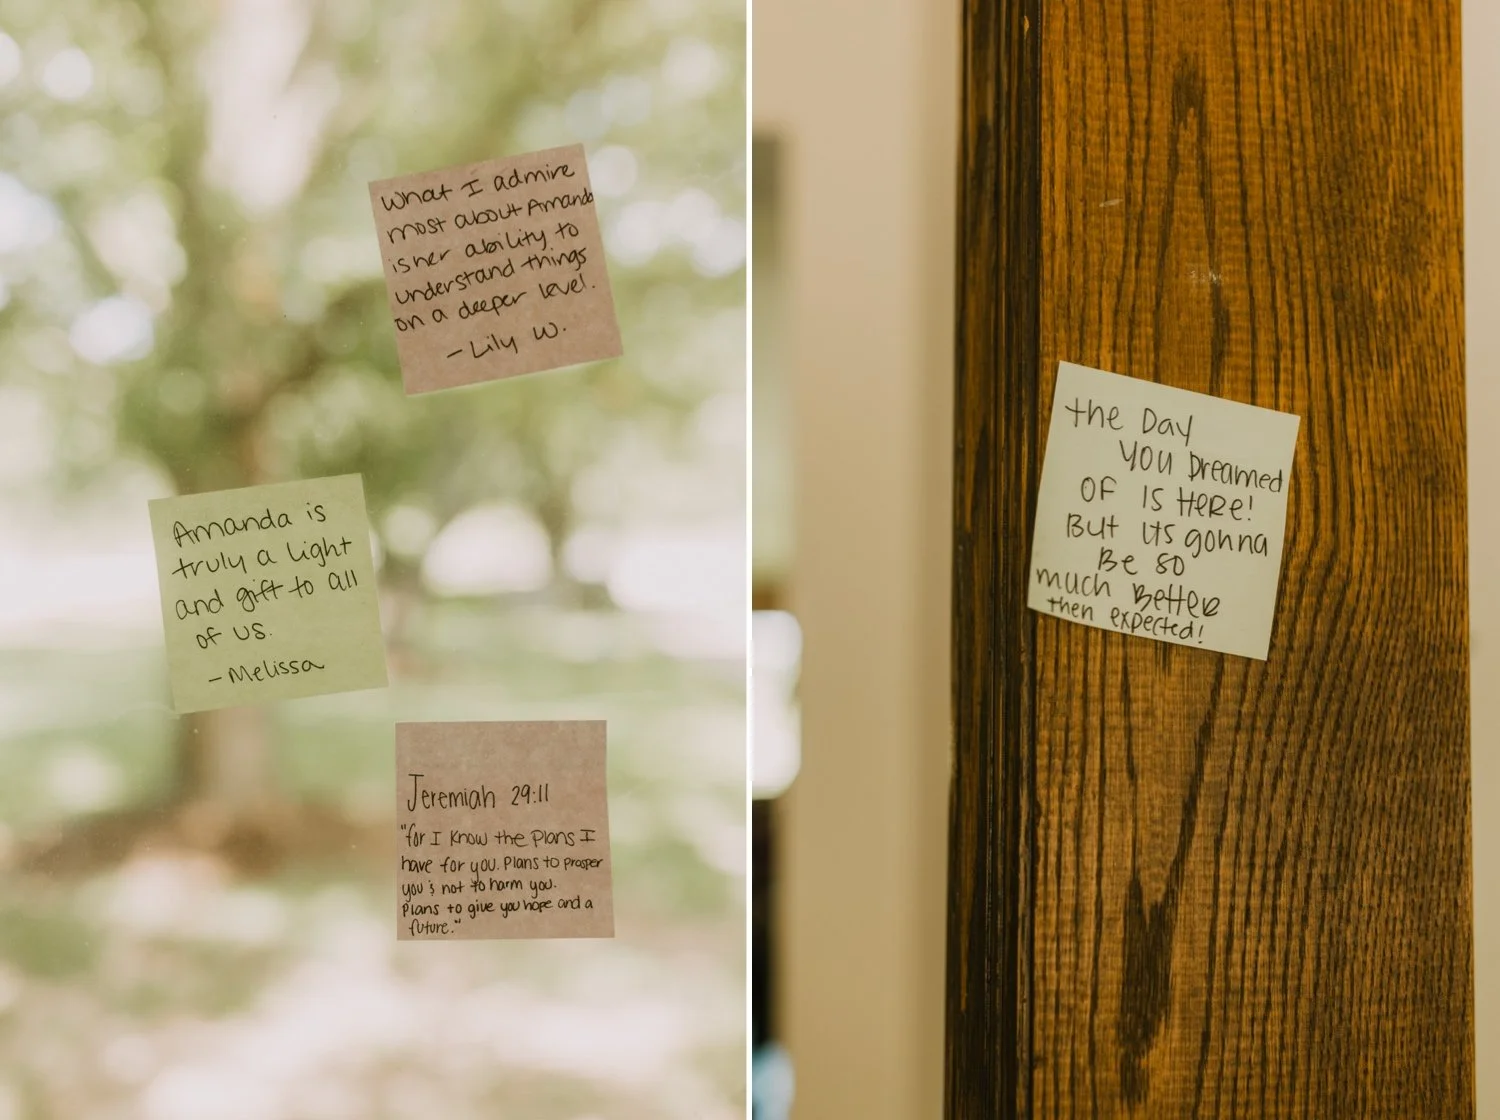 What I admire
most about Amanda
is her ability to
understand things
on a deeper level.
- Lily W.
Amanda is
truly a light
and gift to all
of us.
- Melissa
Jeremiah 29:11
"for I know the plans I
have for you. Plans to prosper
you & not to harm you.
Plans to give you hope and a
future."
the Day
you Dreamed
OF IS HERE!
But its gonna
Be so
much Better
then expected!